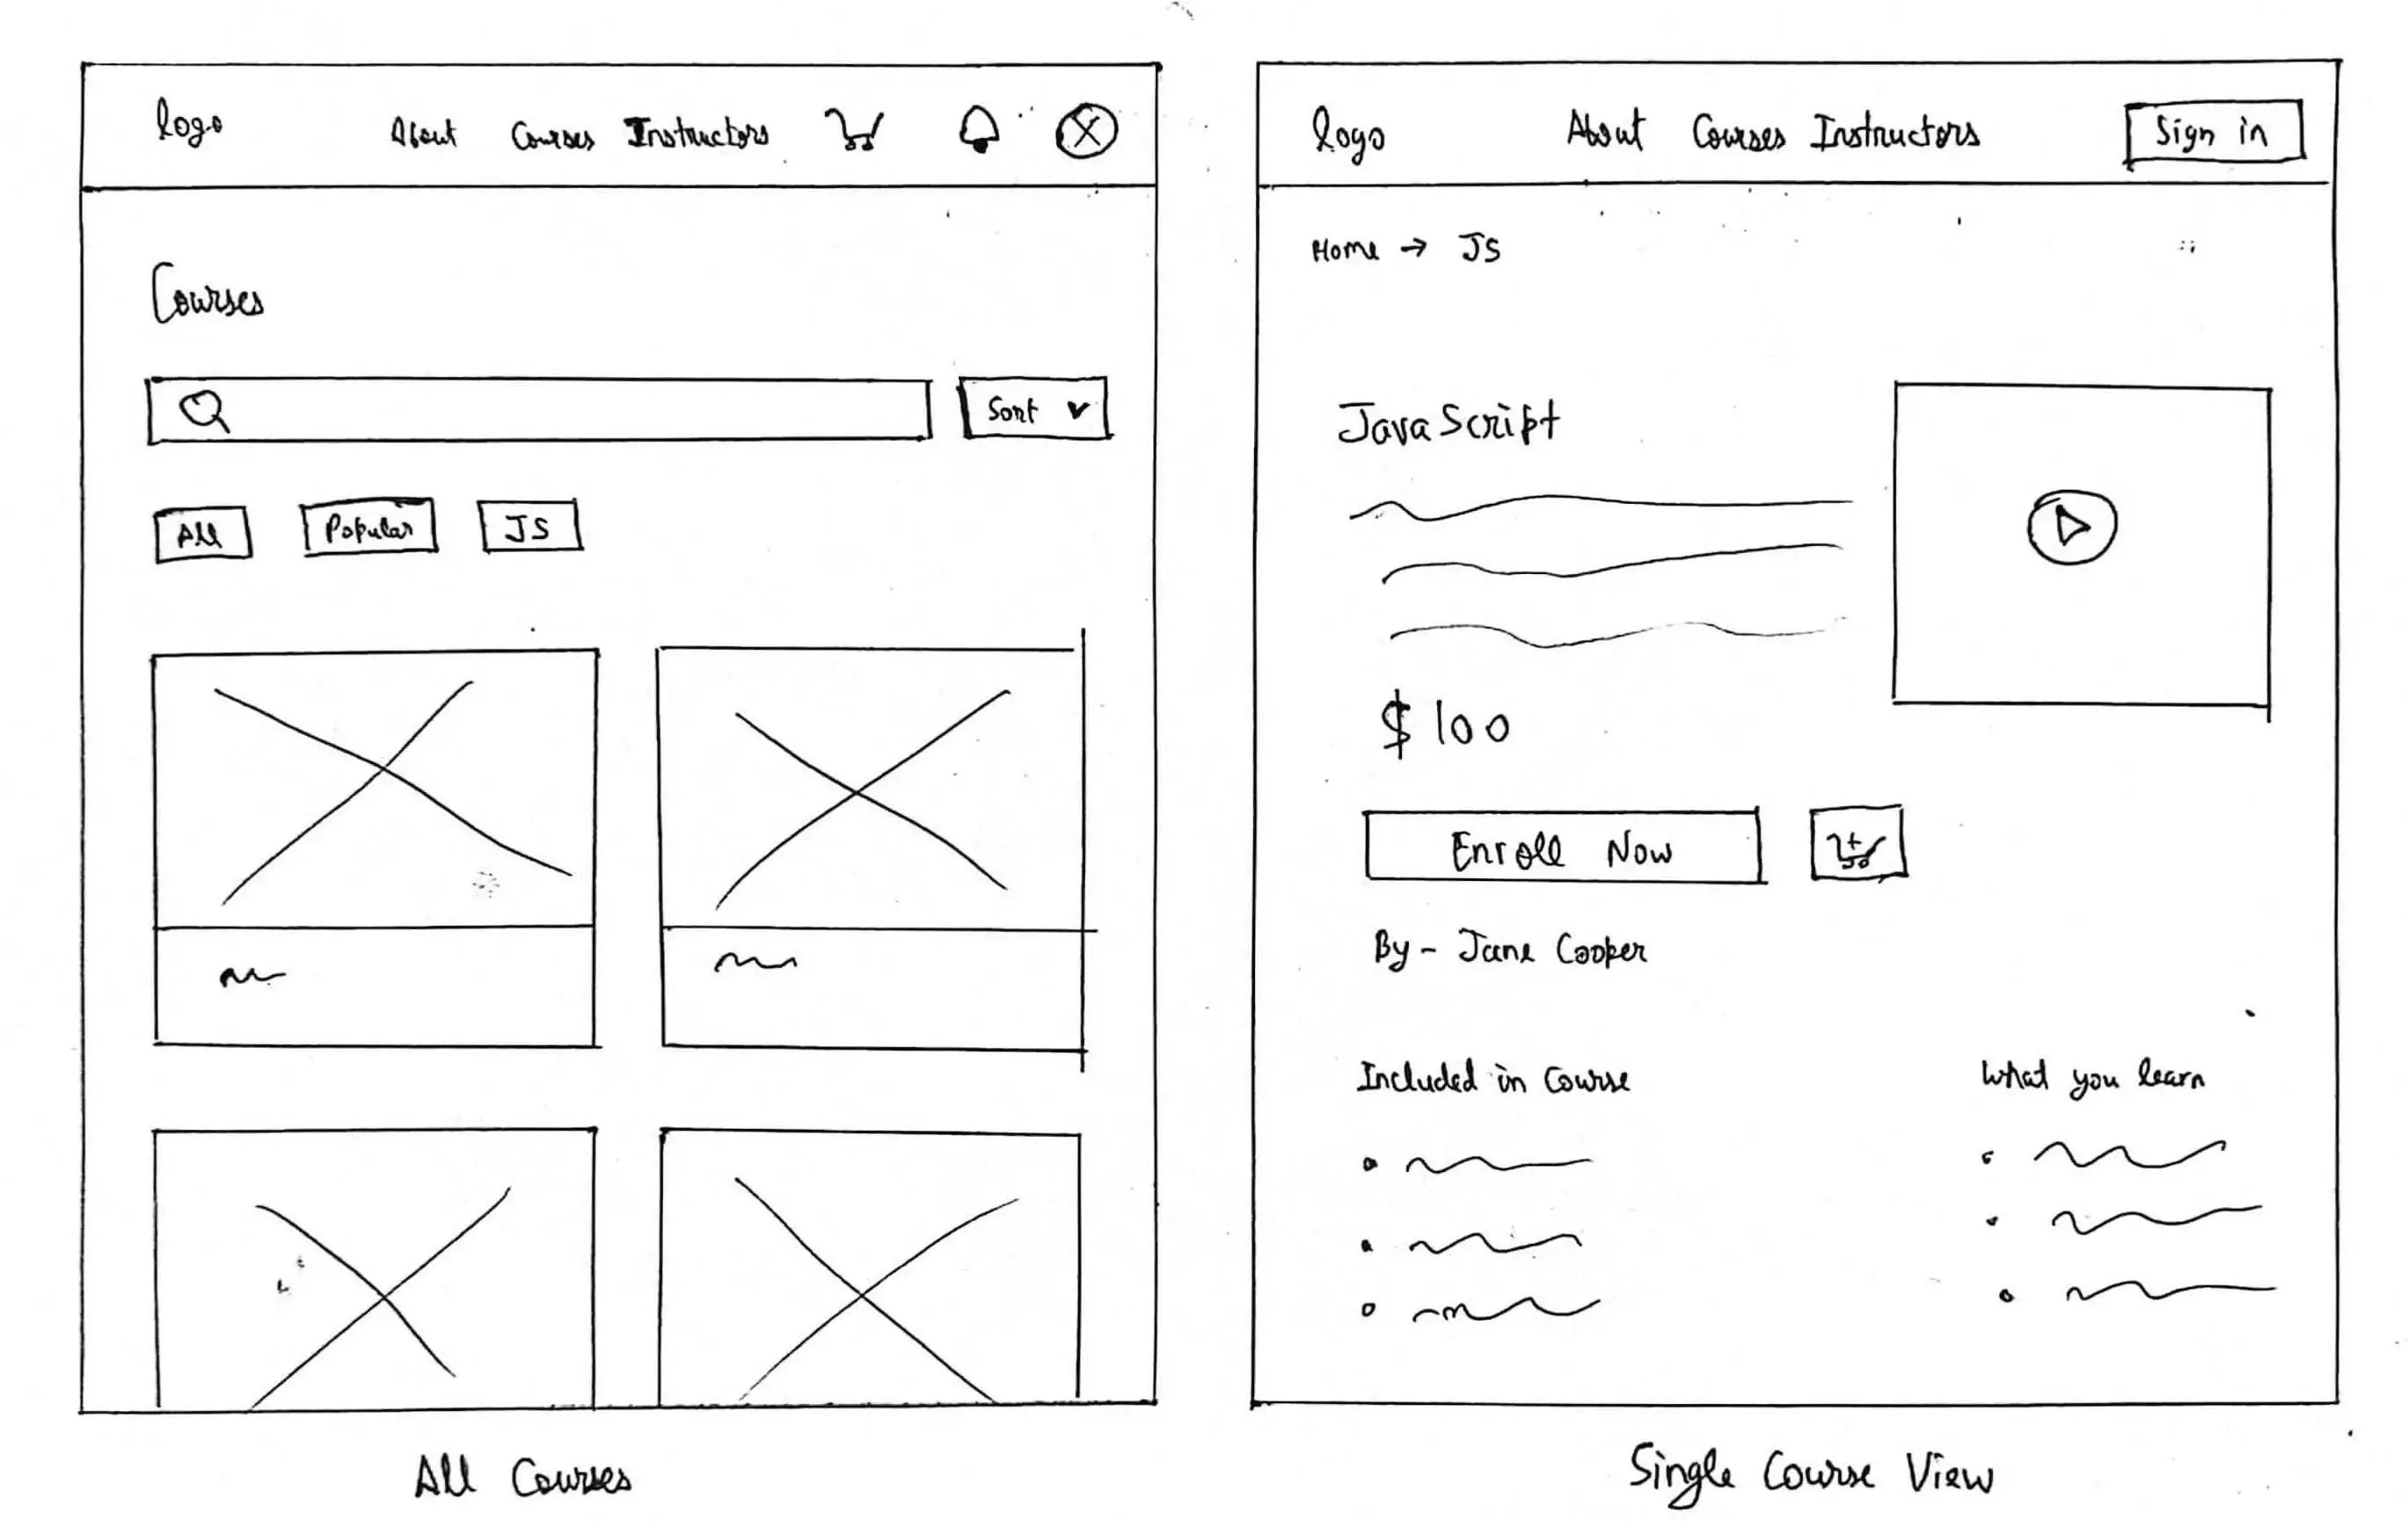 logo About Courses Instructors
Courses
Sort
All Popular JS
All Courses
logo About Courses Instructors Sign in
Home → JS
JavaScript
$ 100
Enroll Now
By - Jane Cooper
Included in Course
What you learn
Single Course View